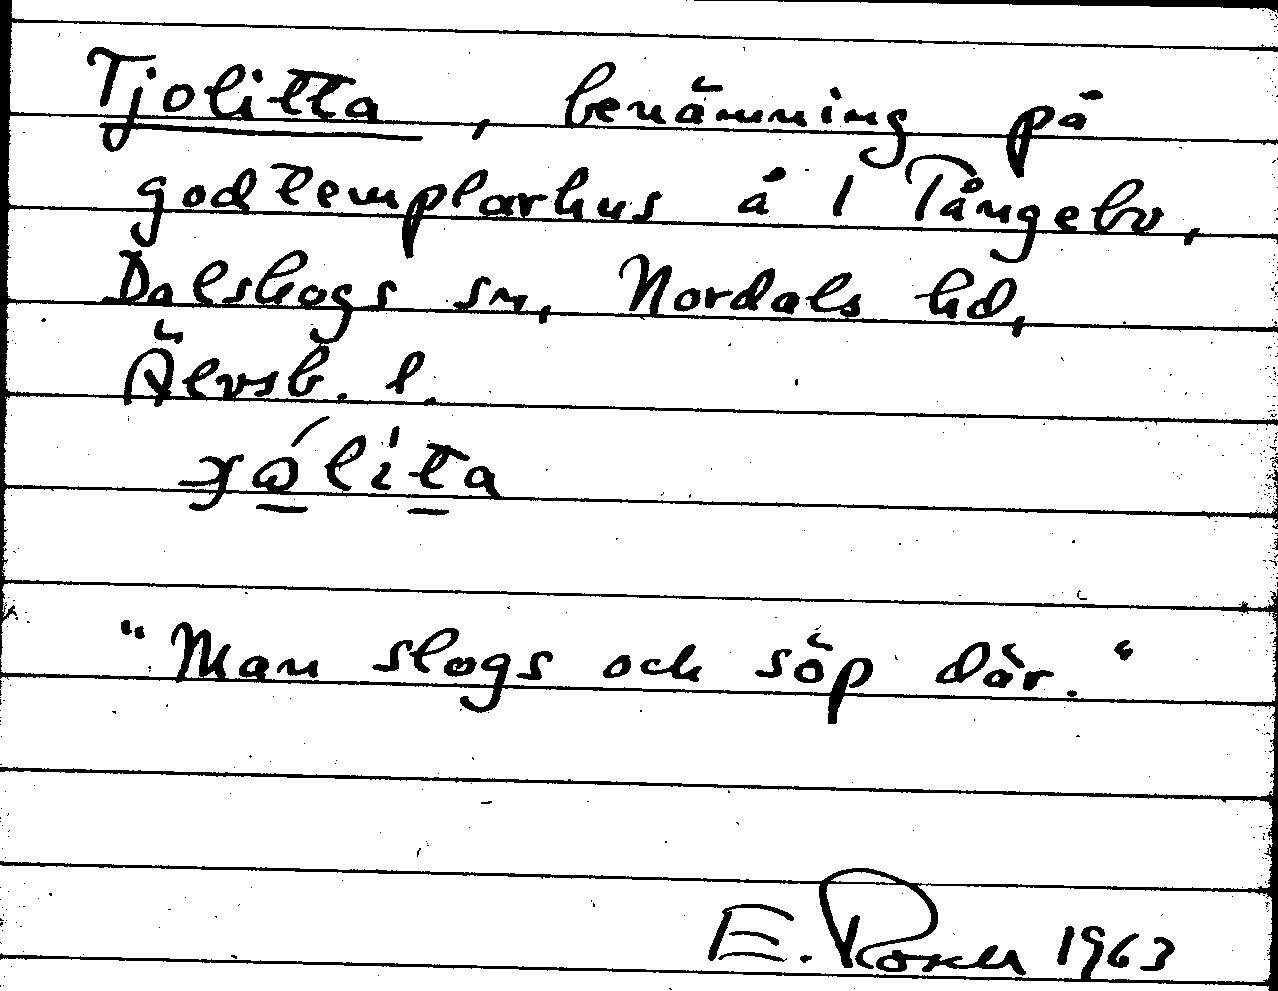 Tjolitta, benämning på
godtemplarhus å 1 Tångebo,
Dalskogs sn, Nordals hd,
Älvsb. l.
"Man slogs och söp där."
E. Rosell 1963